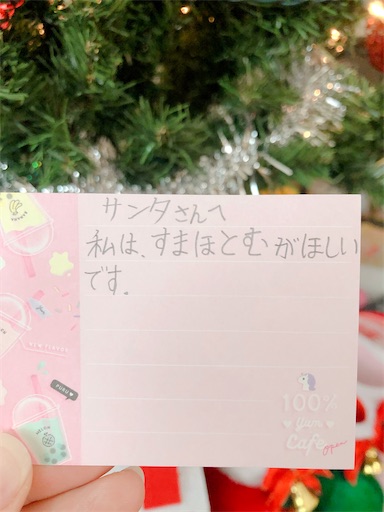 サンタさんへ
私は、すまほとむがほしい
です.
100%
Yum
Cafe
open